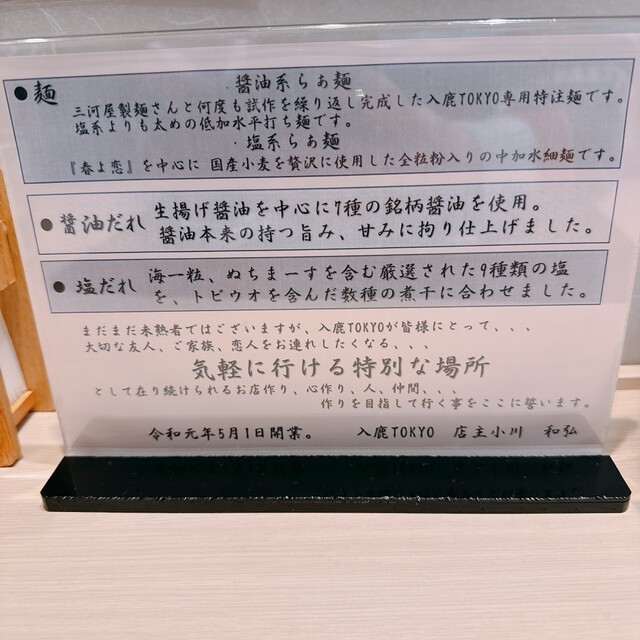 ●麺
醤油系らぁ麺
三河屋製麺さんと何度も試作を繰り返し完成した入鹿TOKYO専用特注麺です。
塩系よりも太めの低加水平打ち麺です。
・塩系らぁ麺
『春よ恋』を中心に 国産小麦を贅沢に使用した全粒粉入りの中加水細麺です。
●醤油だれ
生揚げ醤油を中心に7種の銘柄醤油を使用。
醤油本来の持つ旨み、甘みに拘り仕上げました。
●塩だれ
海一粒、ぬちまーすを含む厳選された9種類の塩
を、トビウオを含んだ数種の煮干に合わせました。
まだまだ未熟者ではございますが、入鹿TOKYOが皆様にとって、、、
大切な友人、ご家族、恋人をお連れしたくなる、、、
気軽に行ける特別な場所
として在り続けられるお店作り、心作り、人、仲間、、、
作りを目指して行く事をここに誓います。
令和元年5月1日開業。 入鹿TOKYO 店主小川 和弘